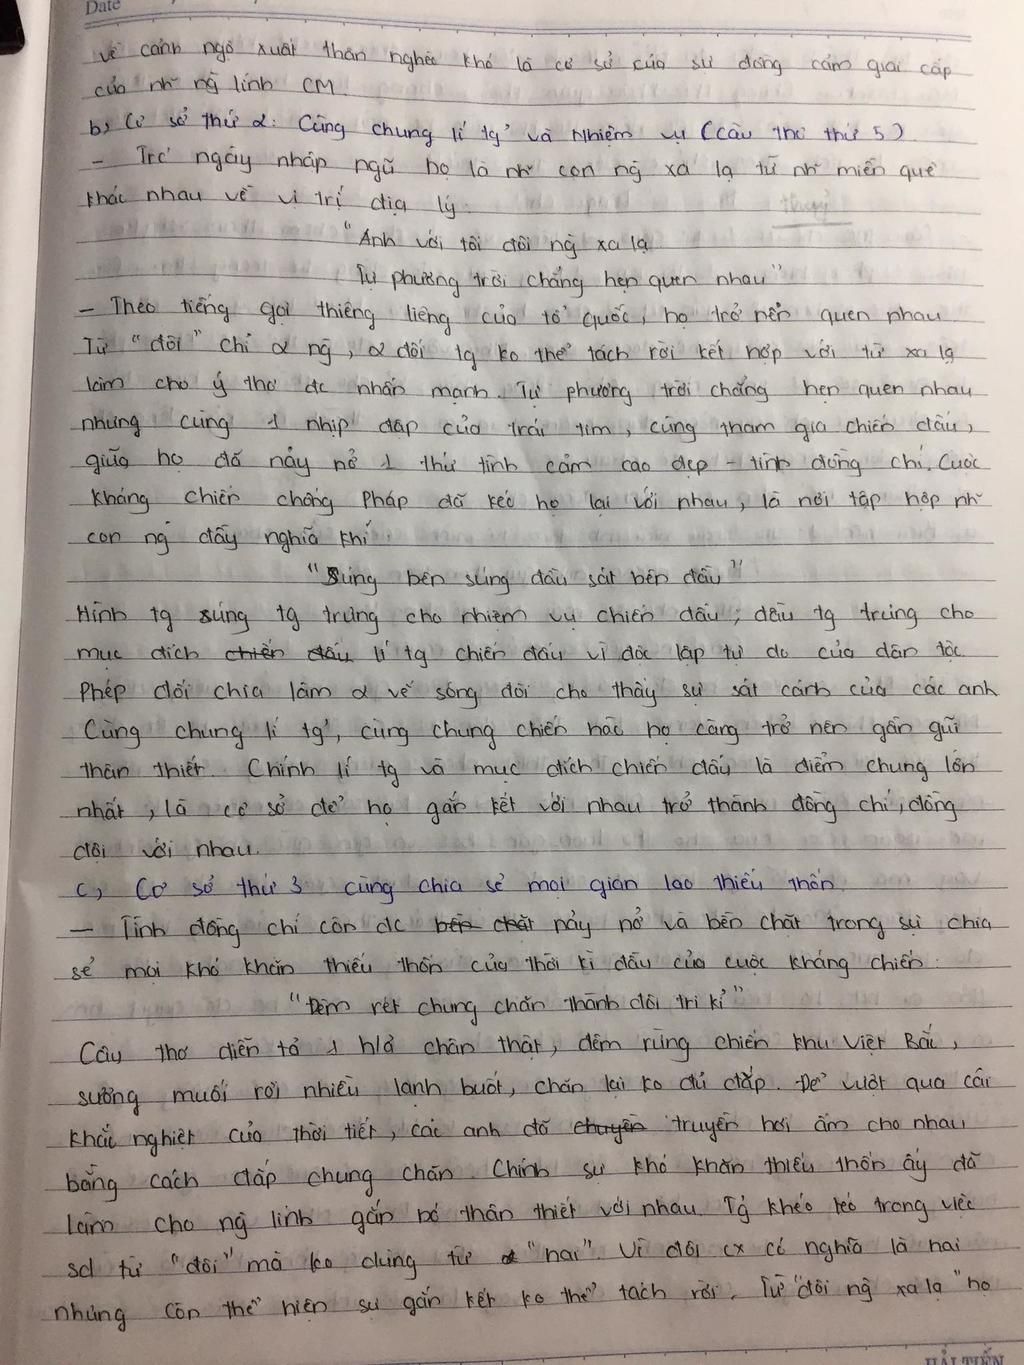 Date
về cảnh ngộ xuất thân nghèo khó là cơ sở của sự đồng cảm giai cấp
của nh~ ng lính CM.
b, Cơ sở thứ 2: Cùng chung lí tg' và nhiệm vụ (câu thơ thứ 5)
- Trc ngày nhập ngũ họ là nh~ con ng xa lạ từ nh~ miền quê
khác nhau về vị trí địa lý.
"Anh với tôi đôi ng xa lạ
Tự phương trời chẳng hẹn quen nhau"
- Theo tiếng gọi thiêng liêng của tổ Quốc, họ trở nên quen nhau
Từ "đôi" chỉ 2 ng, 2 đối tg ko thể tách rời kết hợp với từ xa lạ
làm cho ý thơ đc nhấn mạnh. Tự phương trời chẳng hẹn quen nhau
nhưng cùng 1 nhịp đập của trái tim, cùng tham gia chiến đấu,
giữa họ đã nảy nở 1 thứ tình cảm cao đẹp - tình đồng chí. Cuộc
kháng chiến chống Pháp đã kéo họ lại với nhau, là nơi tập hợp nh~
con ng đầy nghĩa khí.
"Súng bên súng đầu sát bên đầu"
Hình tg súng tg trưng cho nhiệm vụ chiến đấu; đầu tg trưng cho
mục đích chiến đấu lí tg chiến đấu vì độc lập tự do của dân tộc.
Phép đối chia làm 2 vế sóng đôi cho thấy sự sát cánh của các anh
Cùng chung lí tg', cùng chung chiến hào họ càng trở nên gần gũi
thân thiết. Chính lí tg và mục đích chiến đấu là điểm chung lớn
nhất, là cơ sở để họ gắn kết với nhau trở thành đồng chí, đồng
đội với nhau.
c, Cơ sở thứ 3 cùng chia sẻ mọi gian lao thiếu thốn
- Tình đồng chí còn đc bền chặt nảy nở và bền chặt trong sự chia
sẻ mọi khó khăn thiếu thốn của thời kì đầu của cuộc kháng chiến:
"Đêm rét chung chăn thành đôi tri kỉ"
Câu thơ diễn tả 1 h/ả chân thật, đêm rừng chiến khu Việt Bắc,
sương muối rơi nhiều lạnh buốt, chăn lại ko đủ đắp. Để vượt qua cái
khắc nghiệt của thời tiết, các anh đã chuyền truyền hơi ấm cho nhau
bằng cách đắp chung chăn. Chính sự khó khăn thiếu thốn ấy đã
làm cho ng lính gắn bó thân thiết với nhau. Tg khéo léo trong việc
sd từ "đôi" mà ko dùng từ "hai". Vì đôi cx có nghĩa là hai
nhưng còn thể hiện sự gắn kết ko thể tách rời. Từ "đôi ng xa lạ" họ
HẢI TIẾN